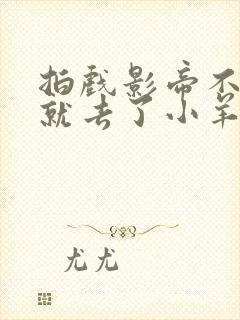 拍戏影帝不
就去了小羊
尤尤